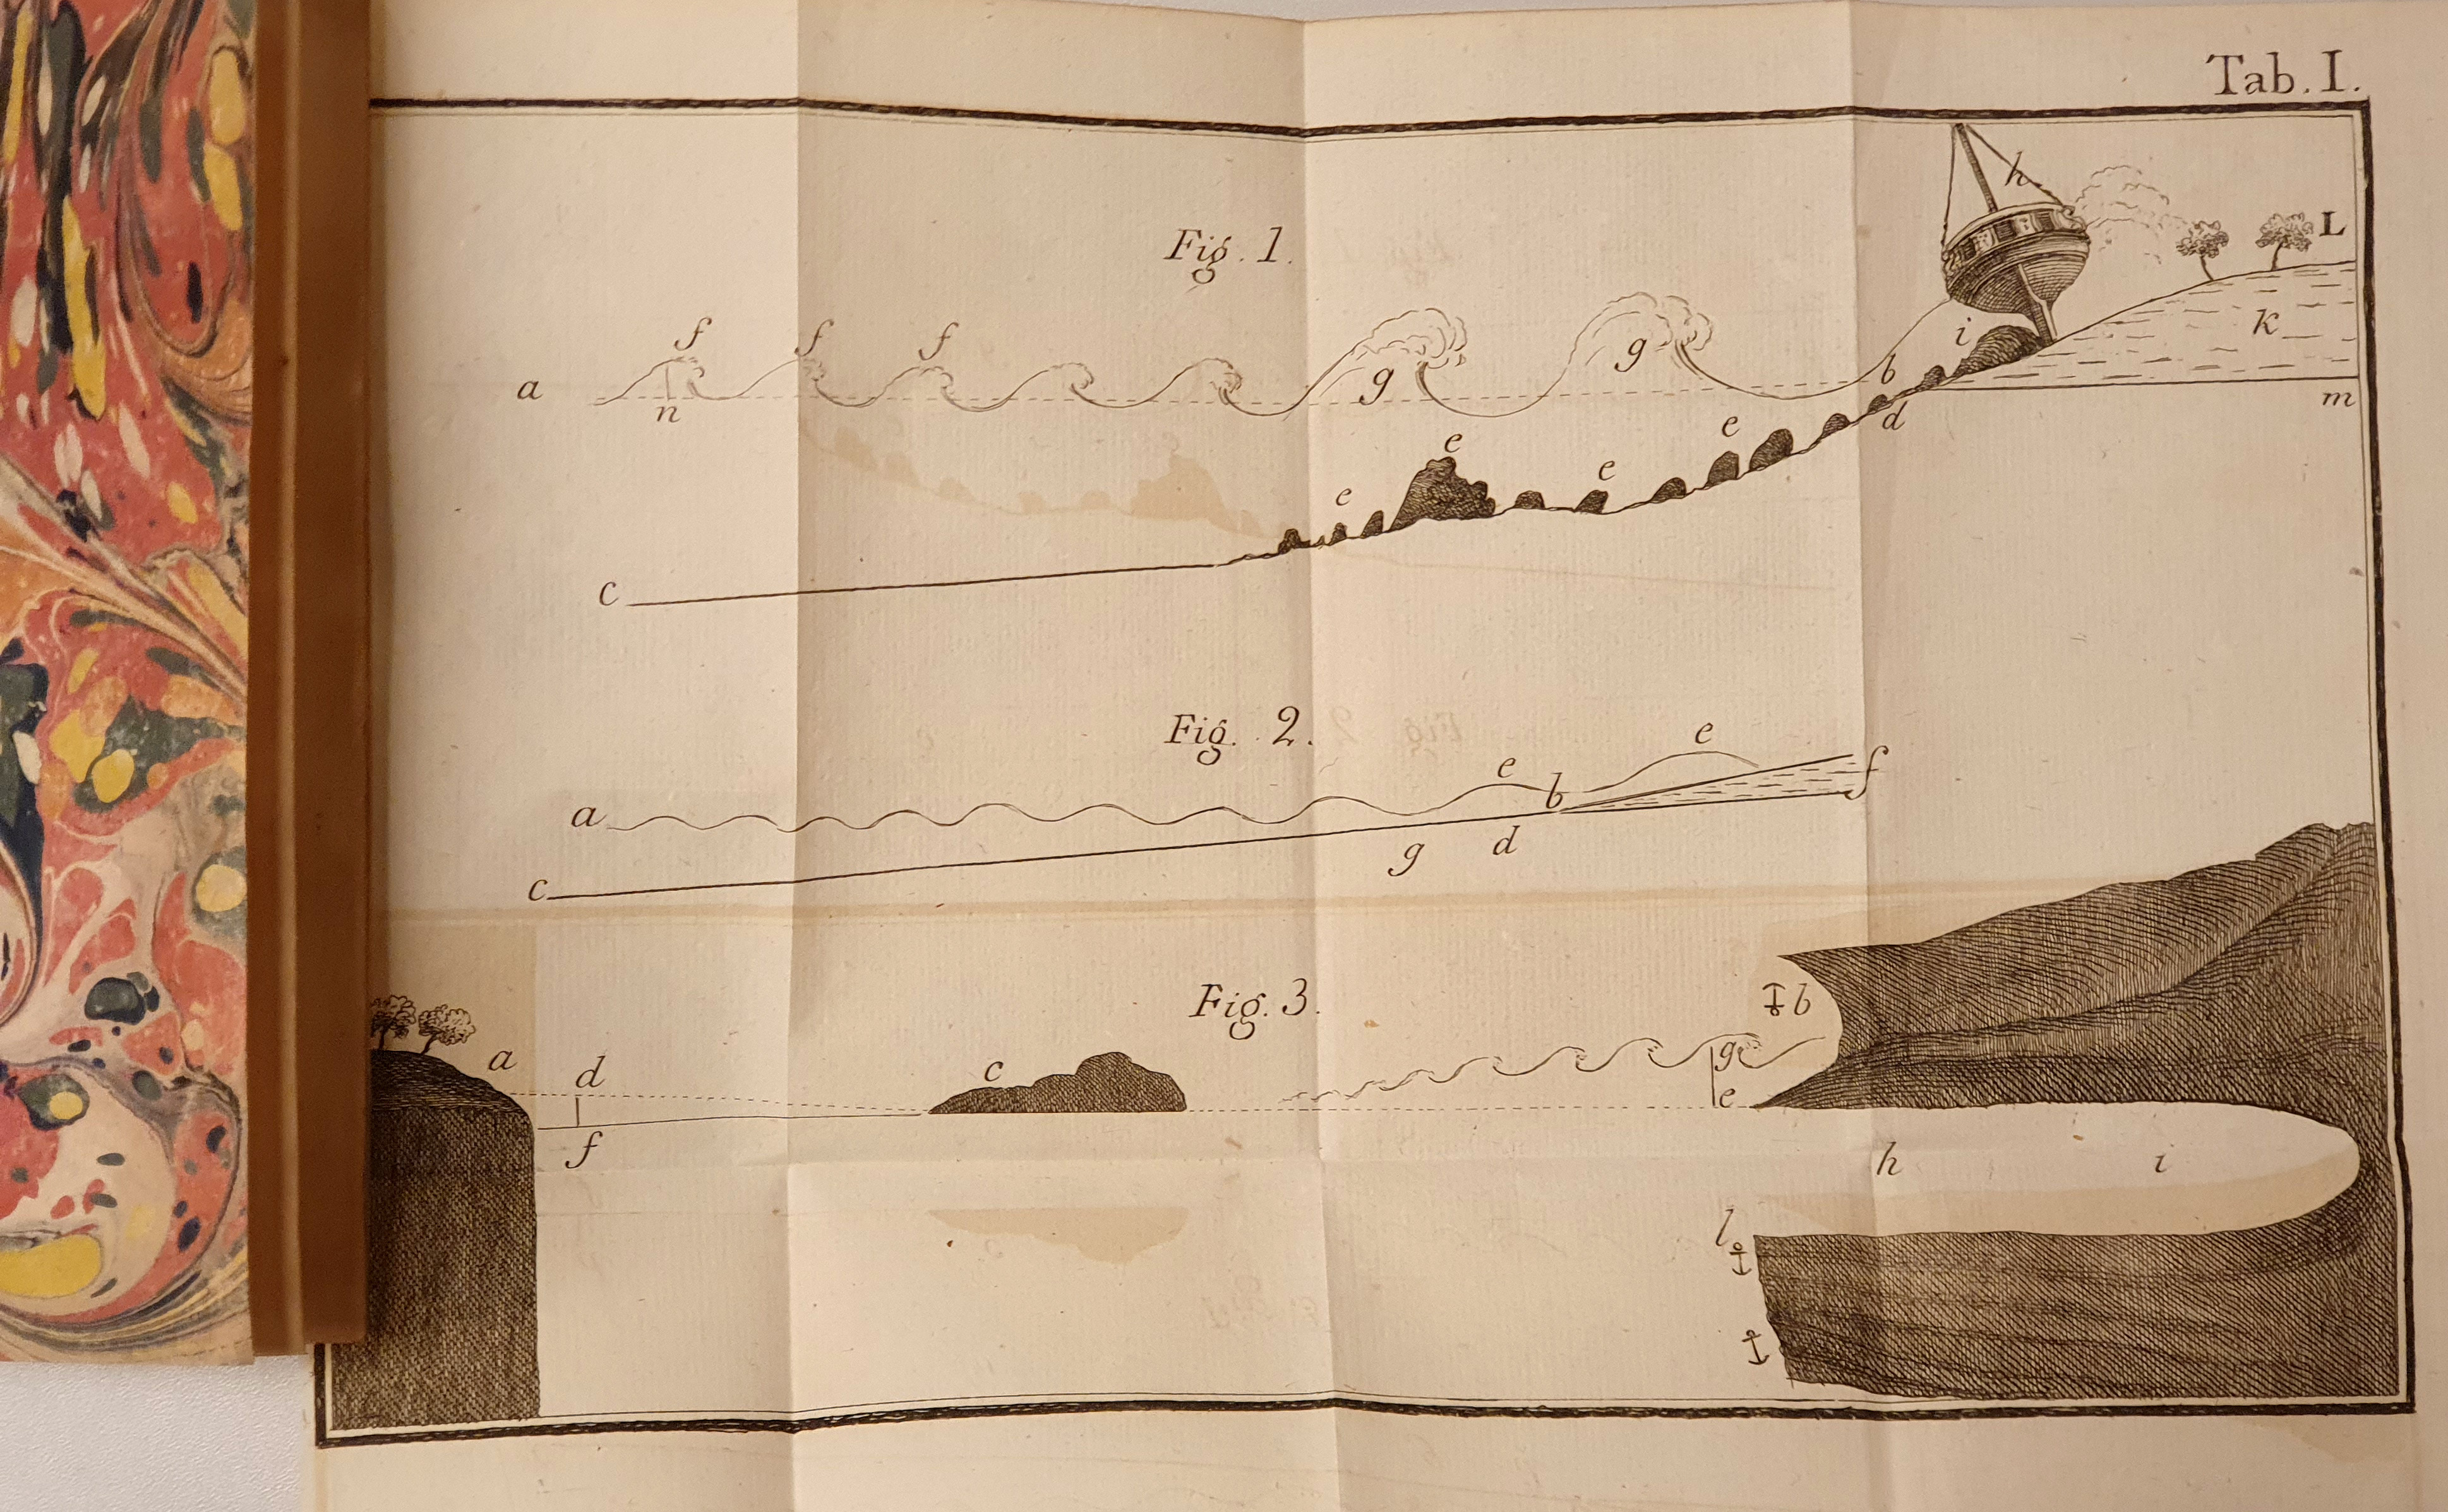 Tab. I.
h
Fig. 1.
L
f f f
i k
g g
a n b m
d
e e e e
c
Fig. 2.
e e
a b f
g d
c
Fig. 3.
b
a d c g
e
f h i
l